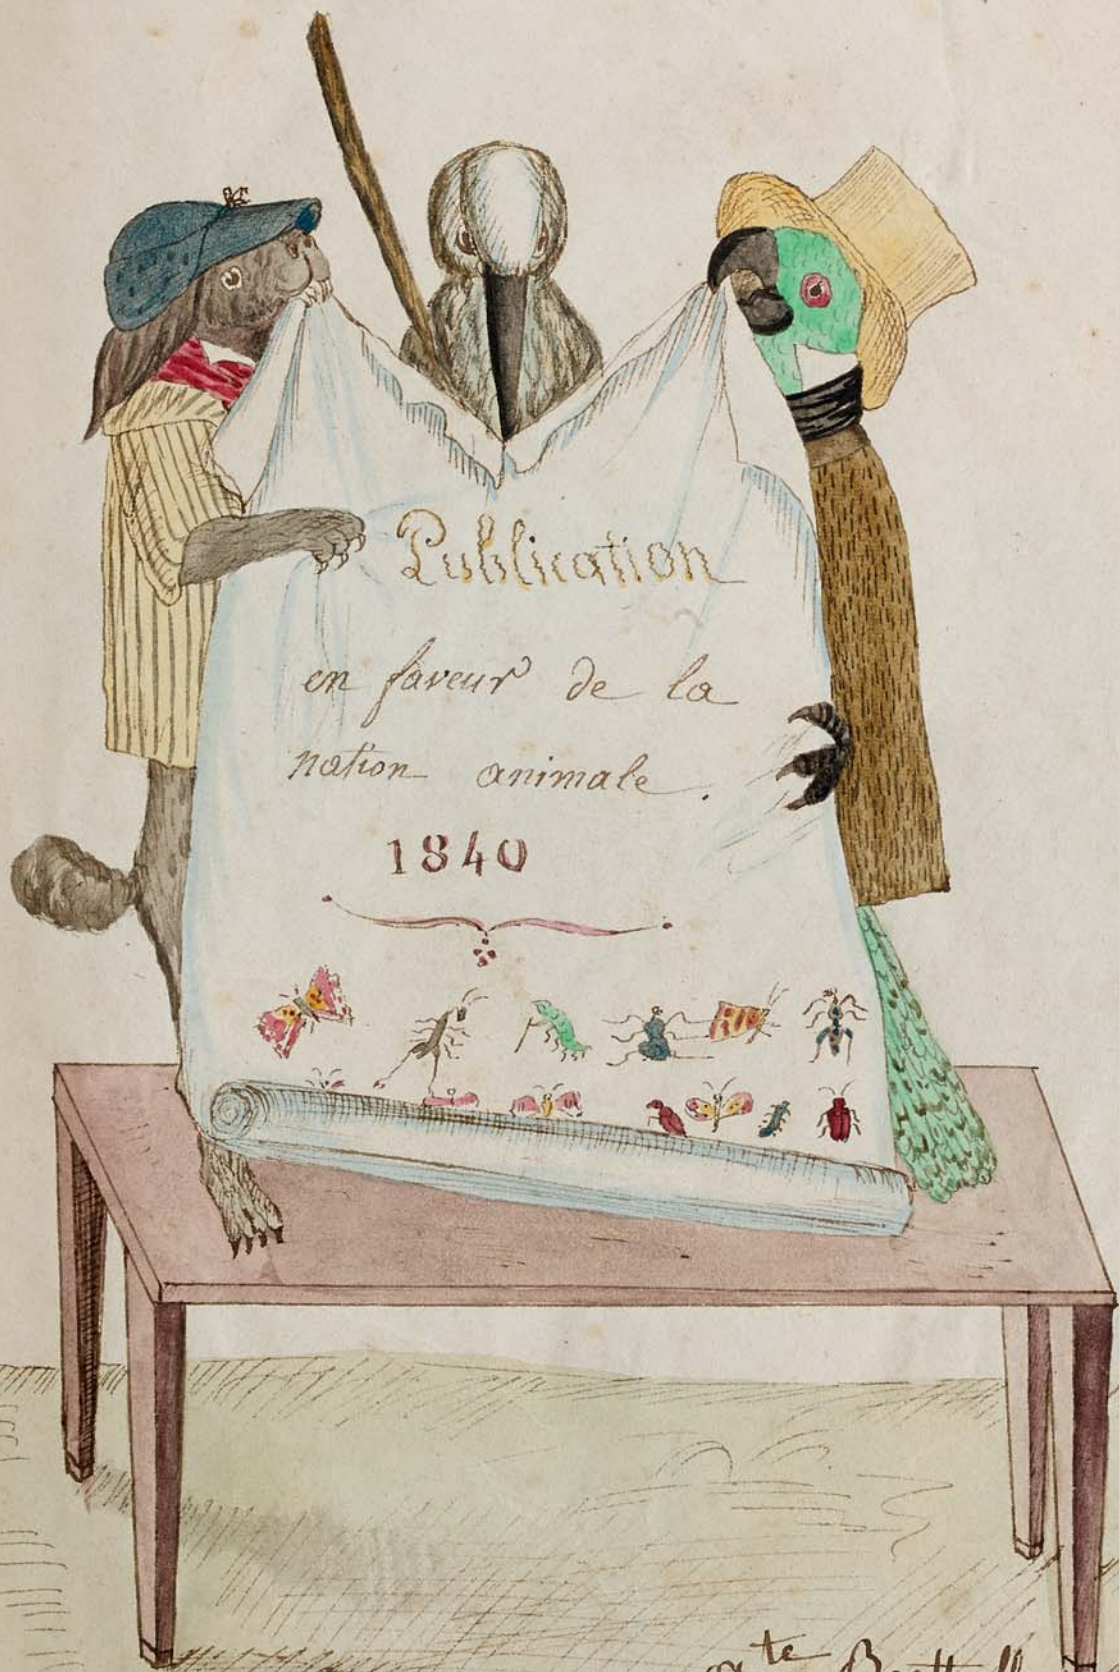 Publication
en faveur de la
nation animale.
1840